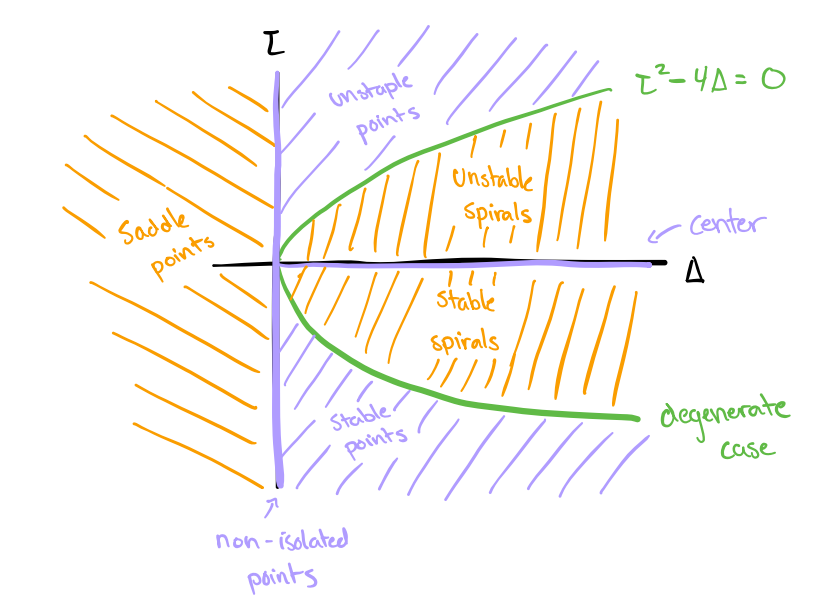 τ
unstaple
points
τ² - 4Δ = 0
unstable
spirals
Saddle
points
center
Δ
Stable
spirals
Stable
points
degenerate
case
non-isolated
points